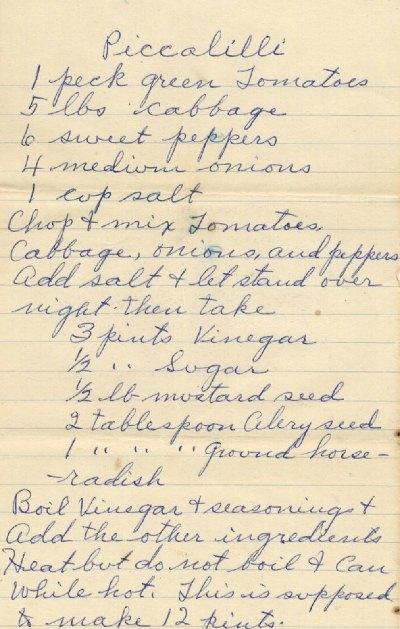 Piccalilli
1 peck green Tomatoes
5 lbs cabbage
6 sweet peppers
4 medium onions
1 cup salt
Chop & mix Tomatoes,
Cabbage, onions, and peppers
Add salt & let stand over
night. then take
3 pints Vinegar
1/2 " " Sugar
1/2 lb mustard seed
2 tablespoon Celery seed
1 " " " " Ground horse-
-radish
Boil Vinegar & seasonings &
Add the other ingredients
Heat but do not boil & Can
While hot. This is supposed
to make 12 pints.